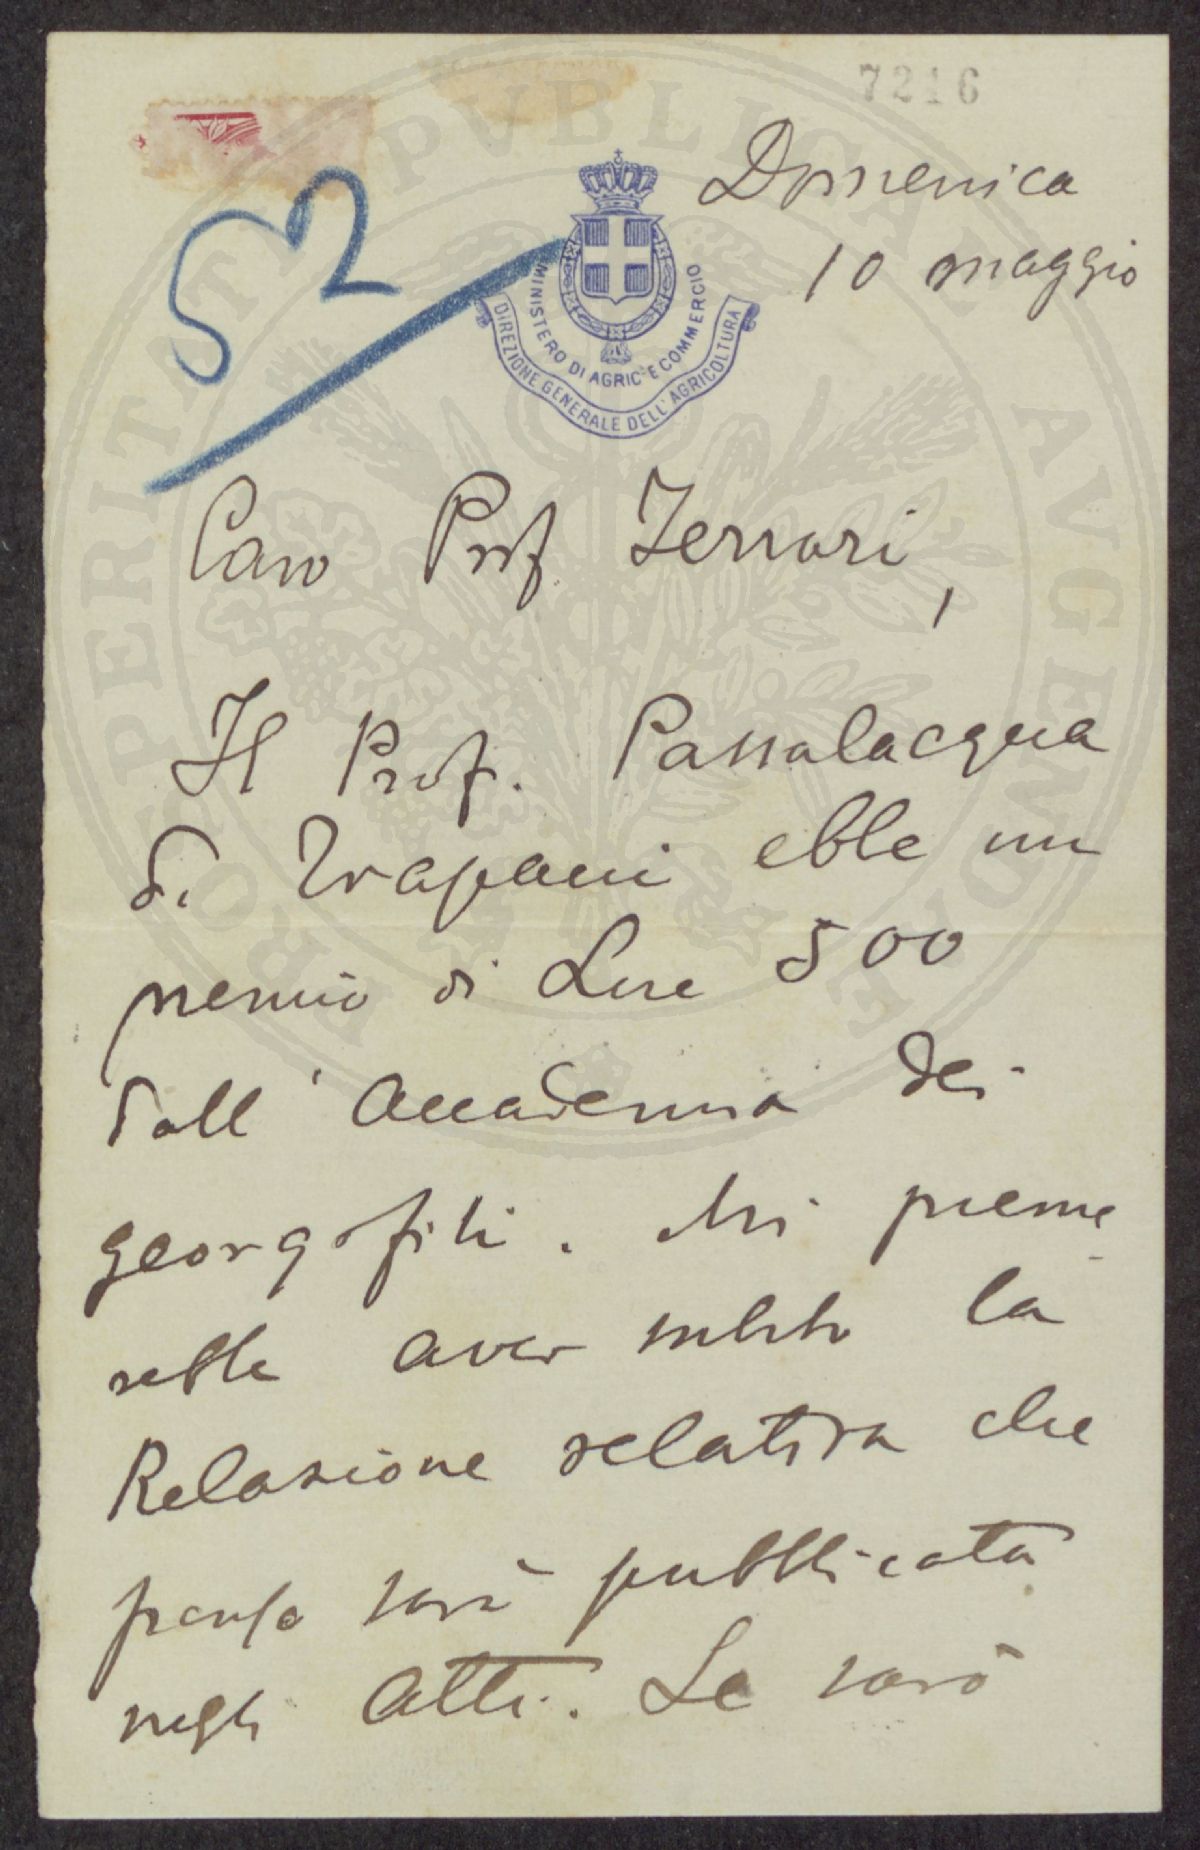 7216
52
Domenica
10 maggio
MINISTERO DI AGRIC. E COMMERCIO
DIREZIONE GENERALE DELL'AGRICOLTURA
PROSPERITATI PVBLICAE AVGENDAE
Caro Prof Ferrari,
Il Prof. Passalacqua
di Trapani ebbe un
premio di Lire 500
dall'Accademia dei
georgofili. Mi preme
rebbe aver subito la
Relazione relativa che
penso sarà pubblicata
negli Atti. Le sarò